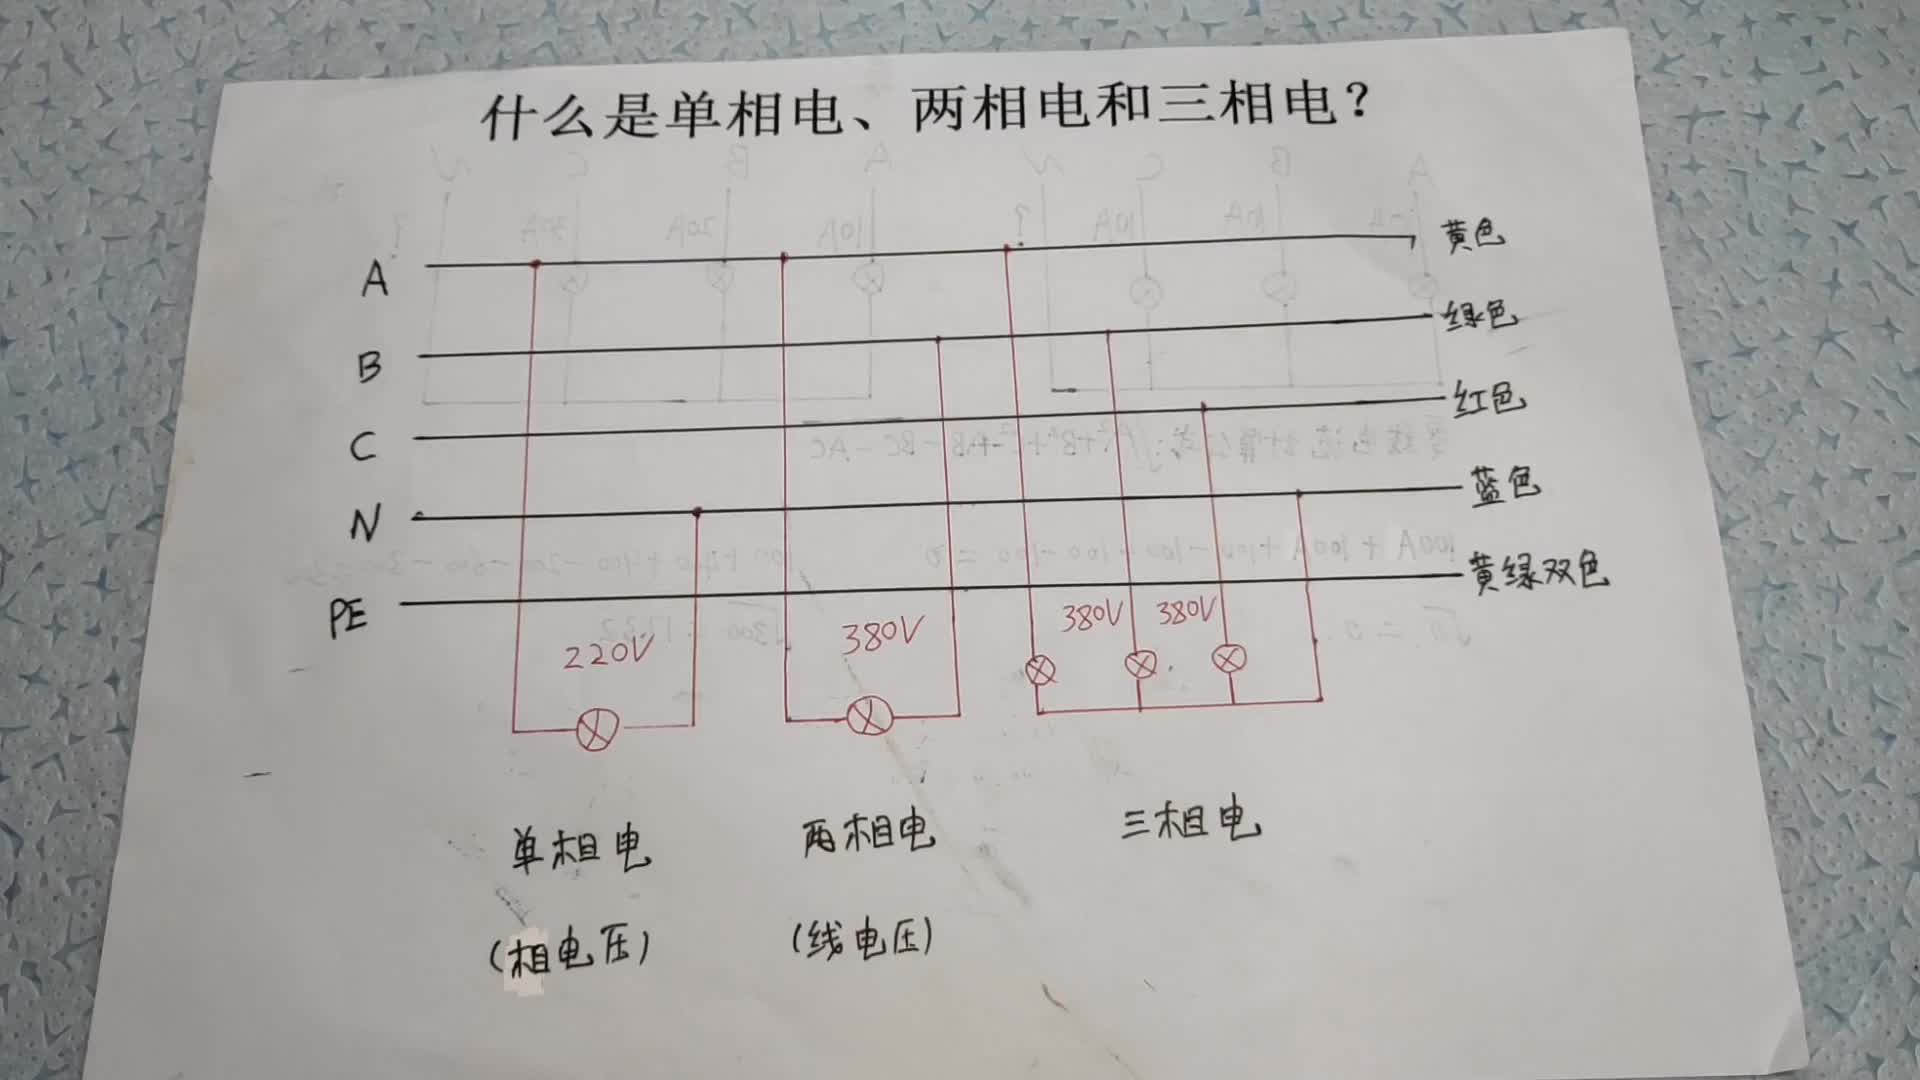 什么是单相电、两相电和三相电?
A 黄色
B 绿色
C 红色
N 蓝色
PE 黄绿双色
220V 380V 380V 380V
单相电 两相电 三相电
(相电压) (线电压)